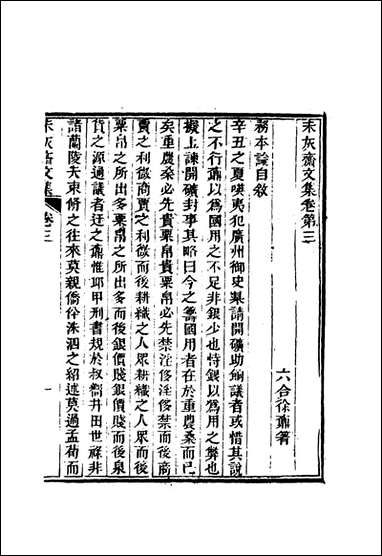 未灰齋文集卷第三
六合徐鼒著
務本論自敘
辛丑之夏𠸄夷犯廣州御史某請開礦助餉議者或惜其說
之不行鼒以爲國用之不足非銀少也恃銀以爲用之弊也
擬上諫開礦封事其略曰今之籌國用者在於重農桑而已
矣重農桑必先貴粟帛必先禁淫侈淫侈禁而後商
賈之利微商賈之利微而後耕織之人眾耕織之人眾而後
粟帛之所出多粟帛之所出多而後銀價賤銀價賤而後泉
貨之源通議者迂之鼒惟耶甲刑書規於叔嚮井田世祿非
諸蘭陵夫束脩之往來莫親僑肸洙泗之紹述莫過孟荀而
未灰齋文集
卷三
一